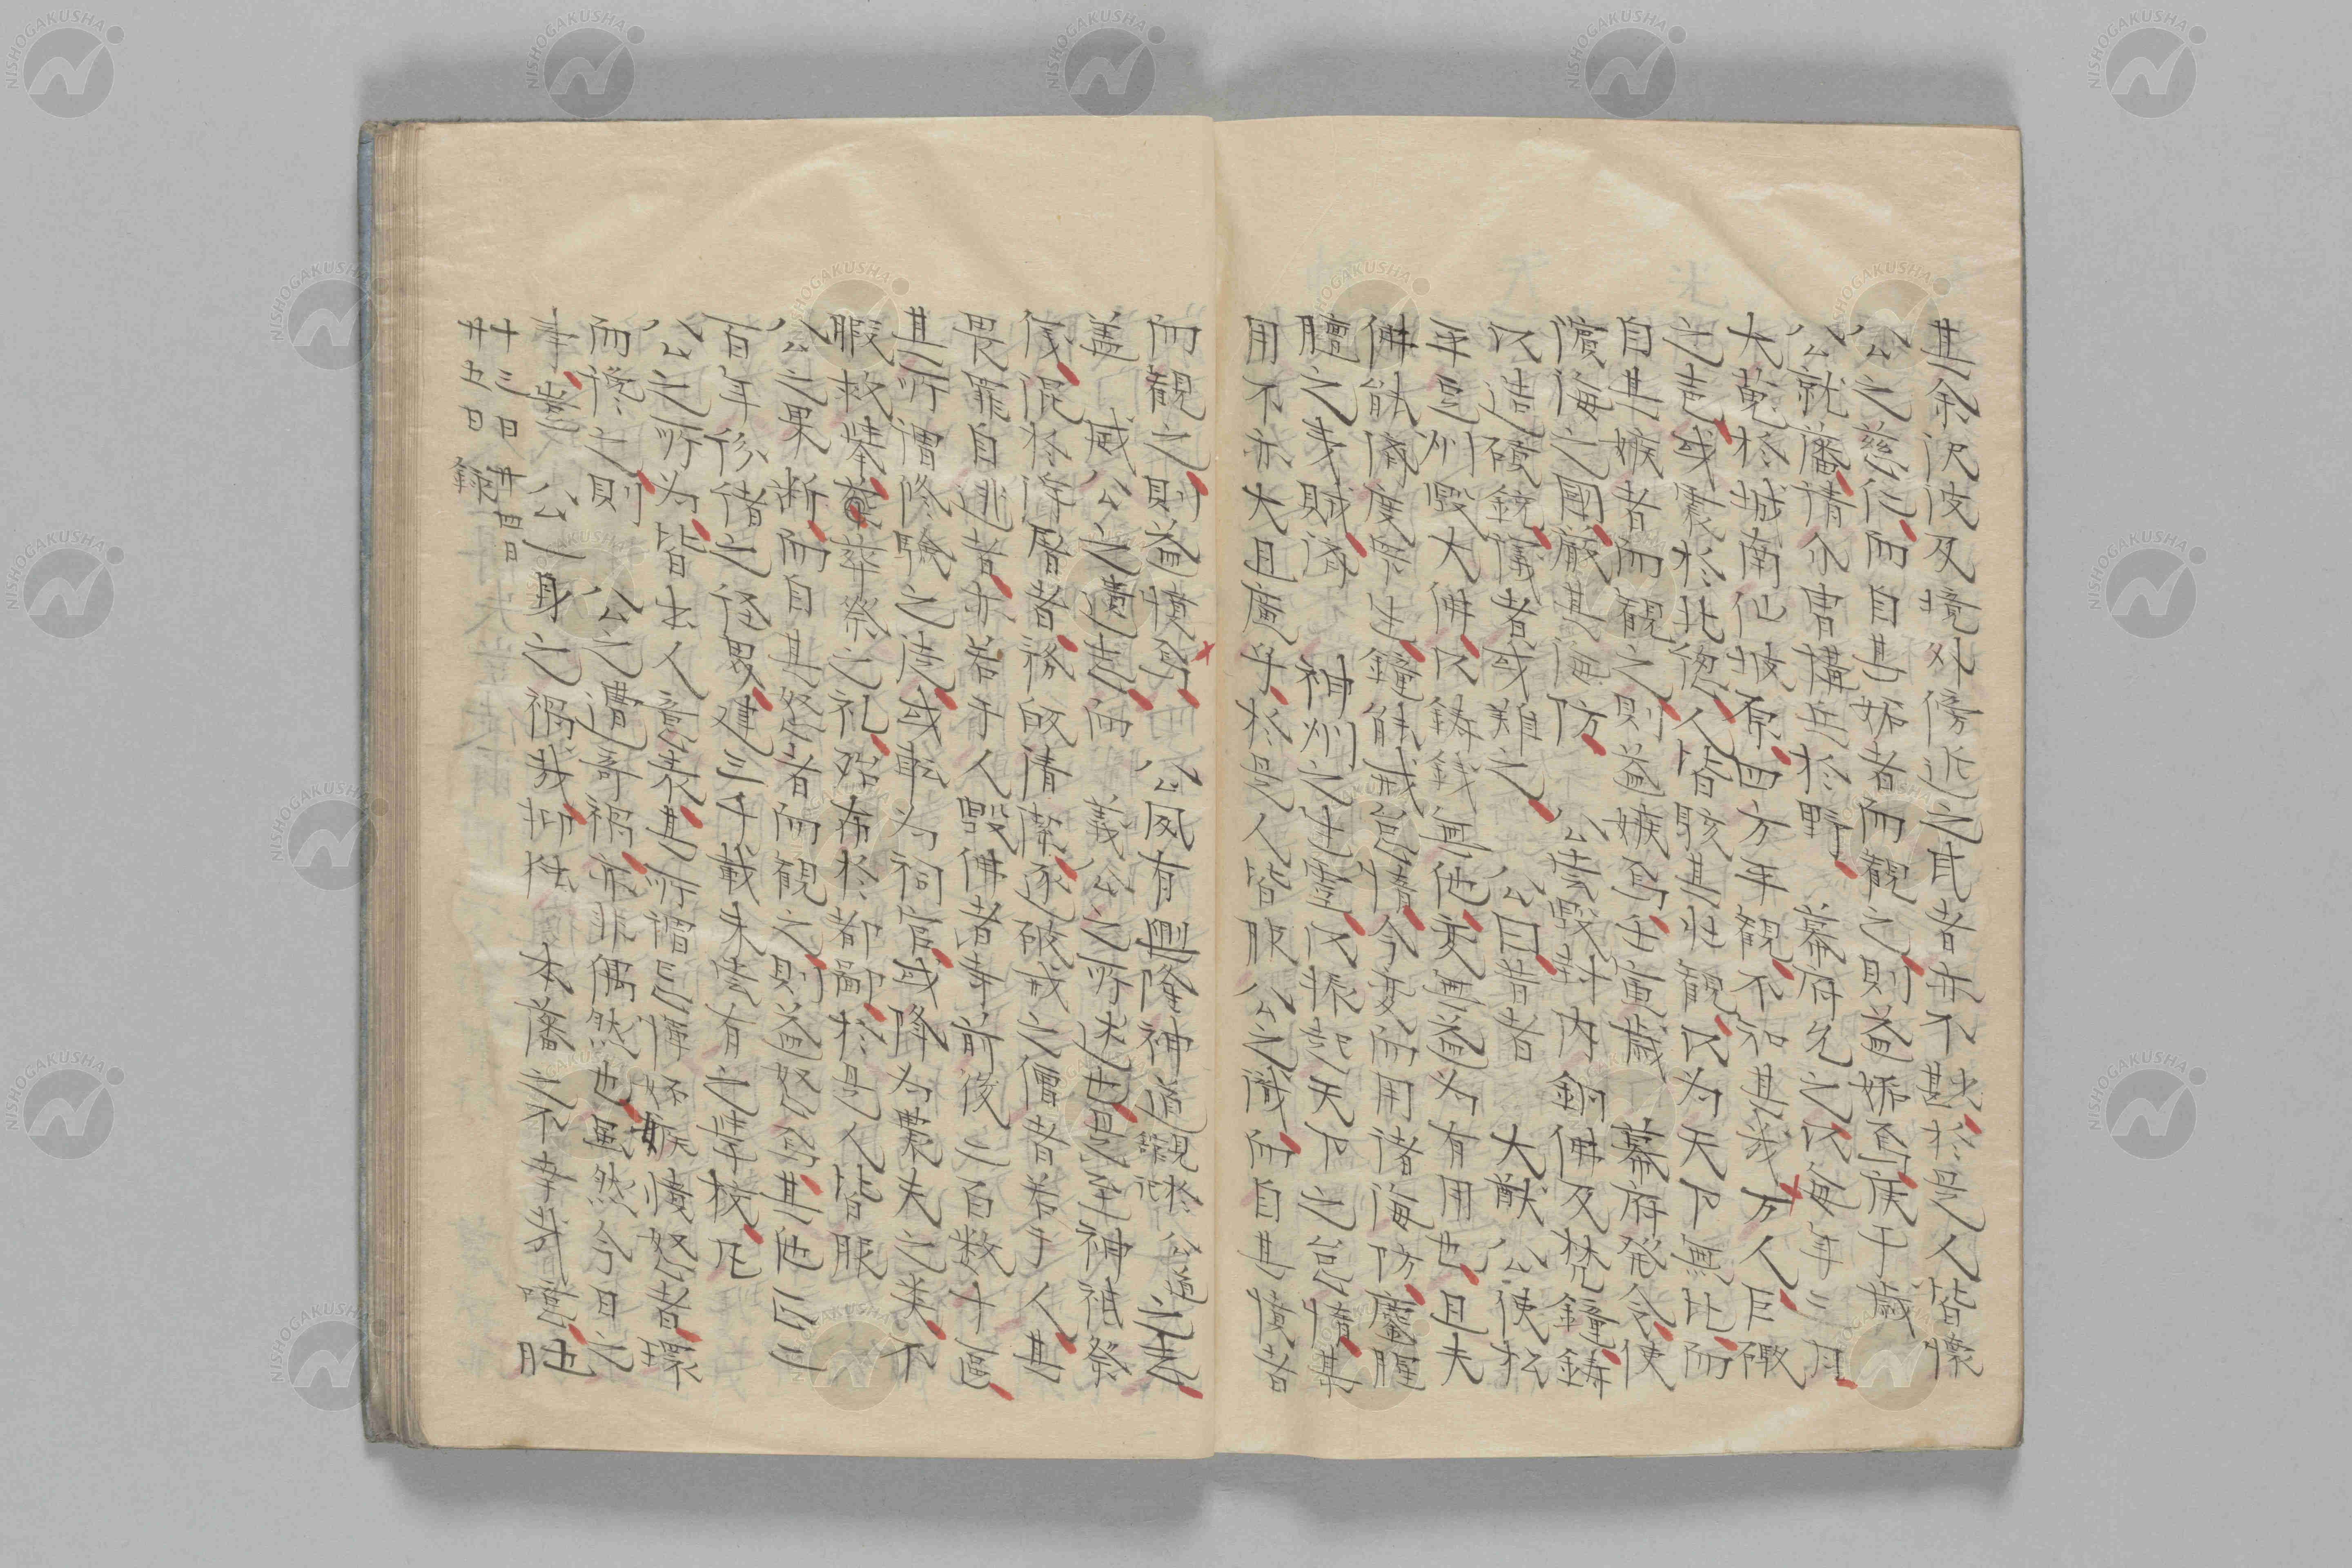 其余沢波及境外傍近之民者亦不甚少於是人皆懐
公之慈仁而自其妬者而観之則益妬焉庚子歳
公就藩請介冑構兵於野　幕府允之以毎年三月
大蒐於城南仙坡原四方年観不知其幾万人巨礮
之声或震於北総人皆駭其壮観以為天下無比而
自其嫉者而観之則益嫉焉壬寅歳　幕府発令使
濱海之国厳其海防　公壱毀封内銅佛及梵鐘鋳
以造礮銃儀者或難之　公曰昔者　大猷公使松
平豆州毀大佛以鋳銭無他変無益為有用也且夫
佛能済度衆生鐘能戒怠惰今変而用諸海防麈腥
羶之夷賊済　神州之生霊以振起天下之怠惰其
用不亦大且廣乎於是人皆服公之識而自其憤者
而観之則益憤焉　公夙有興隆神道之志
蓋　威公之遺志而　義公之所述也是年神祇祭
復混於浮屠者務的清蕩逐破戒之僧者若干人其
畏罪自逃者亦若干人毀佛者寺前後二百数十區
其所僧修験之徒或転為祠官或降為農夫之美不
暇救挙葬祭之礼殆布於都鄙於是人皆服
公之果断而自其怒者而観之則益怒焉其他以三
百年修諸之径界建三千載未嘗有之学校凡
公之所為皆出人意表其所謂忌憚妬嫉憤怒者環
而搆之則　公之遭奇禍亦非偶然也雖然今日之
事豈　公一身之禍哉抑抂　本藩之不幸哉噫
廿三日廿四日
廿五日録